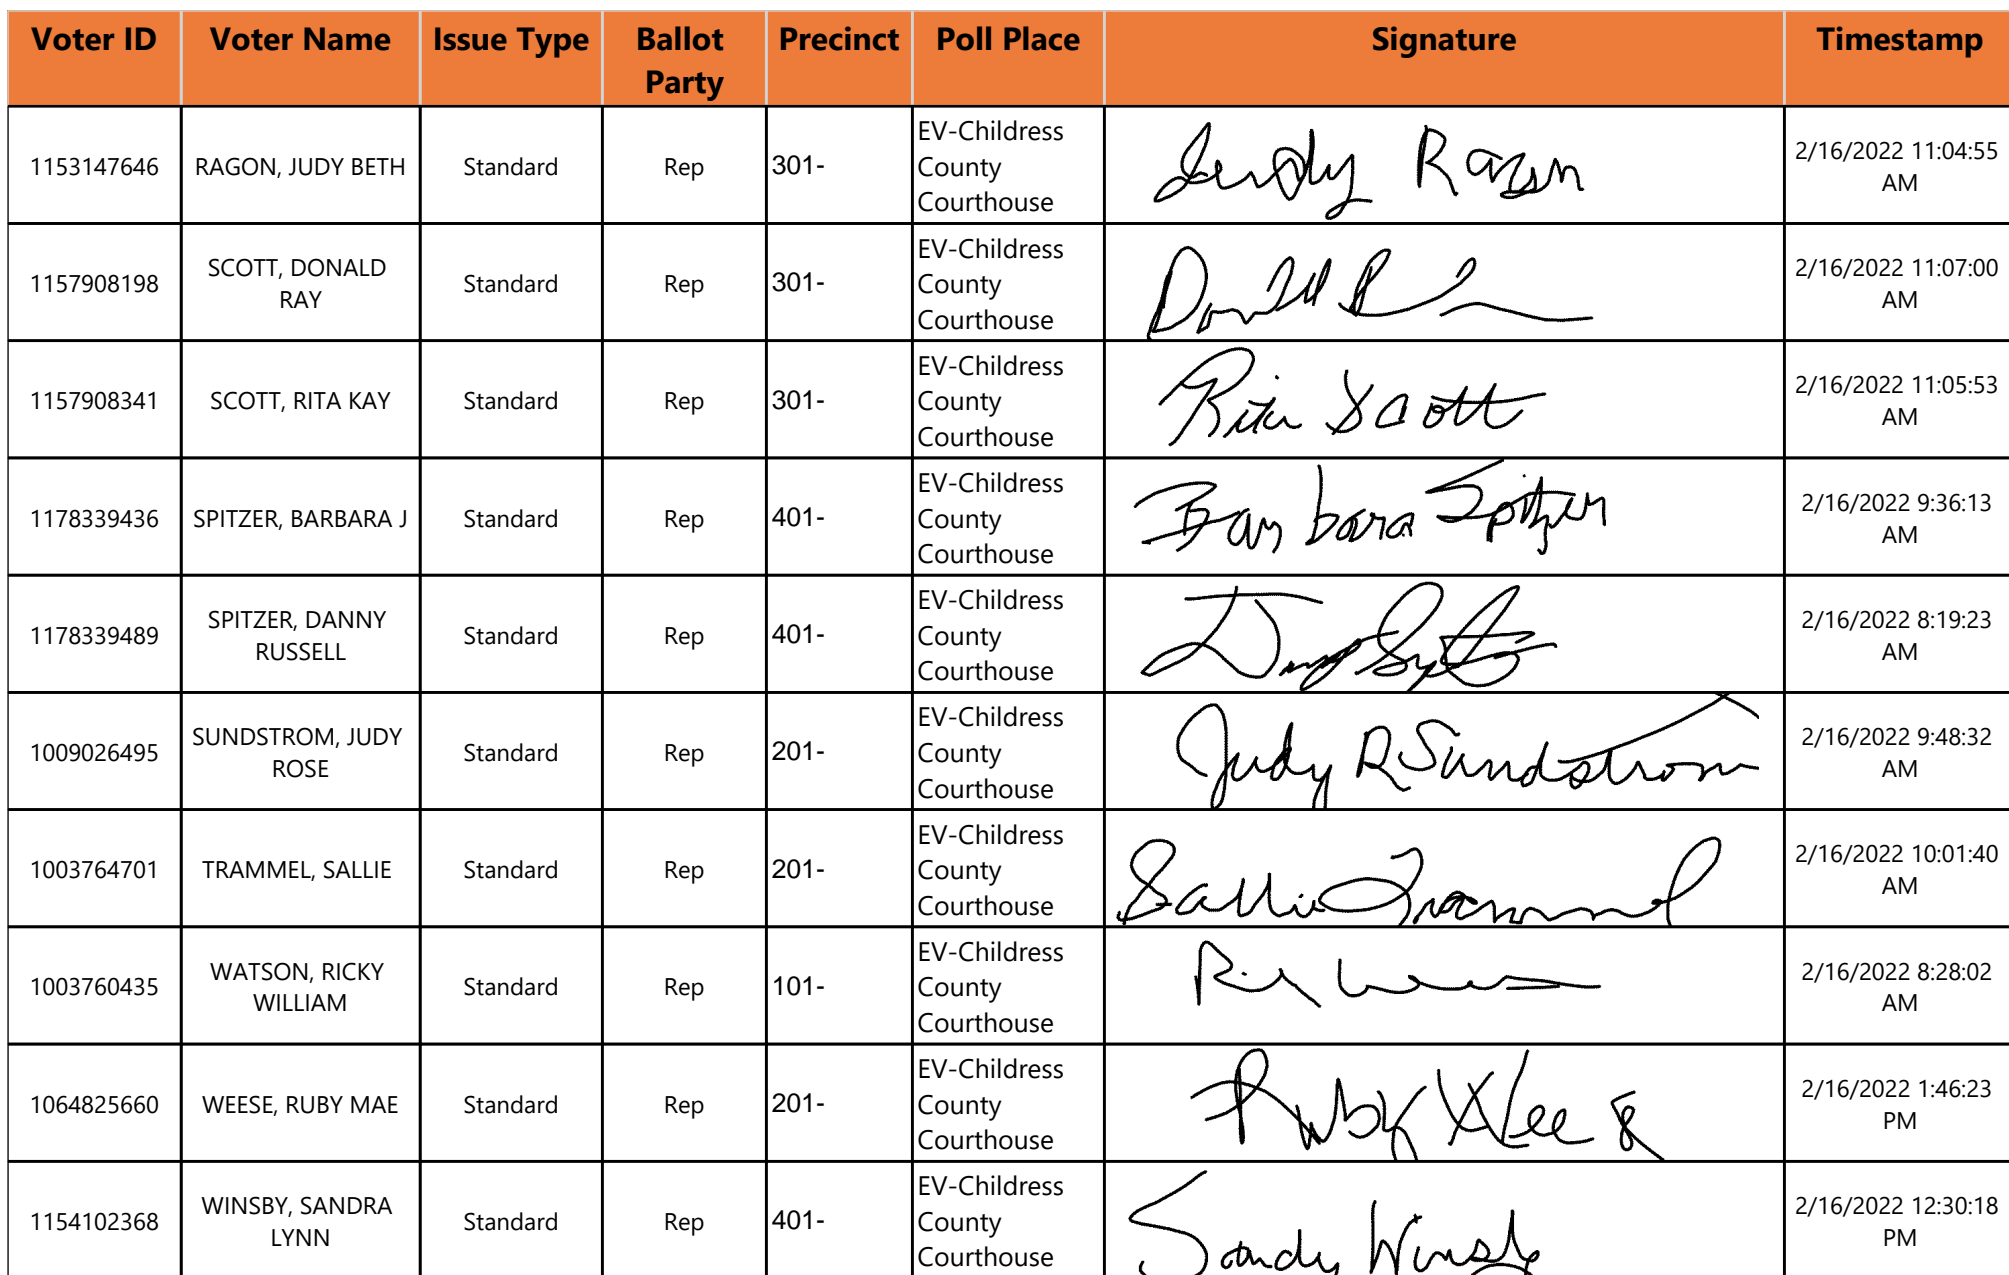 Voter ID Voter Name Issue Type Ballot Party Precinct Poll Place Signature Timestamp
1153147646 RAGON, JUDY BETH Standard Rep 301- EV-Childress County Courthouse Judy Ragon 2/16/2022 11:04:55 AM
1157908198 SCOTT, DONALD RAY Standard Rep 301- EV-Childress County Courthouse Donald 2/16/2022 11:07:00 AM
1157908341 SCOTT, RITA KAY Standard Rep 301- EV-Childress County Courthouse Rita Scott 2/16/2022 11:05:53 AM
1178339436 SPITZER, BARBARA J Standard Rep 401- EV-Childress County Courthouse Barbara Spitzer 2/16/2022 9:36:13 AM
1178339489 SPITZER, DANNY RUSSELL Standard Rep 401- EV-Childress County Courthouse 2/16/2022 8:19:23 AM
1009026495 SUNDSTROM, JUDY ROSE Standard Rep 201- EV-Childress County Courthouse Judy R Sundstrom 2/16/2022 9:48:32 AM
1003764701 TRAMMEL, SALLIE Standard Rep 201- EV-Childress County Courthouse Sallie Trammel 2/16/2022 10:01:40 AM
1003760435 WATSON, RICKY WILLIAM Standard Rep 101- EV-Childress County Courthouse 2/16/2022 8:28:02 AM
1064825660 WEESE, RUBY MAE Standard Rep 201- EV-Childress County Courthouse Ruby Weese 2/16/2022 1:46:23 PM
1154102368 WINSBY, SANDRA LYNN Standard Rep 401- EV-Childress County Courthouse Sandy Winsby 2/16/2022 12:30:18 PM